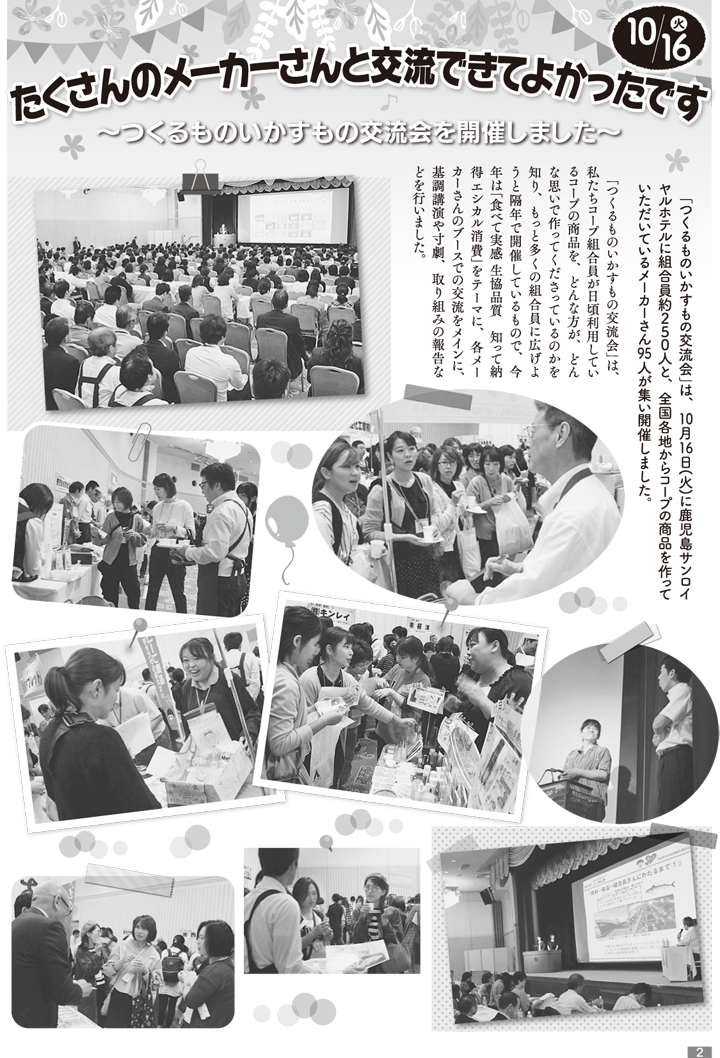 10/16 火
たくさんのメーカーさんと交流できてよかったです
～つくるものいかすもの交流会を開催しました～
「つくるものいかすもの交流会」は、10月16日(火)に鹿児島サンロイ
ヤルホテルに組合員約250人と、全国各地からコープの商品を作って
いただいているメーカーさん95人が集い開催しました。
「つくるものいかすもの交流会」は、
私たちコープ組合員が日頃利用してい
るコープの商品を、どんな方が、どん
な思いで作ってくださっているのかを
知り、もっと多くの組合員に広げよ
うと隔年で開催しているもので、今
年は「食べて実感 生協品質 知って納
得エシカル消費」をテーマに、各メー
カーさんのブースでの交流をメインに、
基調講演や寸劇、取り組みの報告な
どを行いました。
㈱キンレイ
2